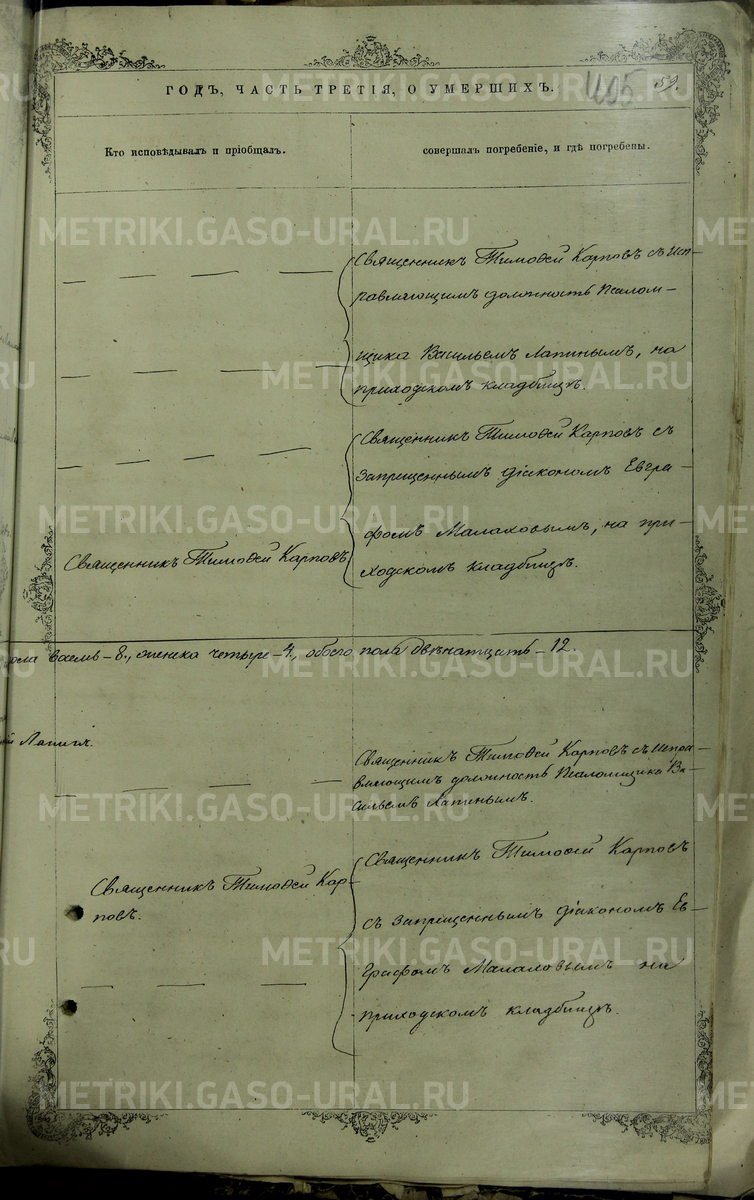 ГОДЪ, ЧАСТЬ ТРЕТІЯ, О УМЕРШИХЪ.
495
59.
Кто исповѣдывалъ и пріобщалъ.
совершалъ погребеніе, и гдѣ погребены.
Священникъ Тимоѳей Карповъ съ исп-
равляющимъ должность Псалом-
щика Васильемъ Лапинымъ, на
приходскомъ кладбищѣ.
Священникъ Тимоѳей Карповъ съ
запрещеннымъ діакономъ Евгра-
фомъ Малаховымъ, на при-
ходскомъ кладбищѣ.
Священникъ Тимоѳей Карповъ
пола восемь – 8, женска четыре – 4, обоего пола двѣнатцать – 12.
Лапинъ.
Священникъ Тимоѳей Карповъ съ испра-
вляющимъ должность Псаломщика Ва-
сильемъ Лапинымъ.
Священникъ Тимоѳей Кар-
повъ.
Священникъ Тимоѳей Карповъ
съ запрещеннымъ діакономъ Ев-
графомъ Малаховымъ на
приходскомъ кладбищѣ.
METRIKI.GASO-URAL.RU